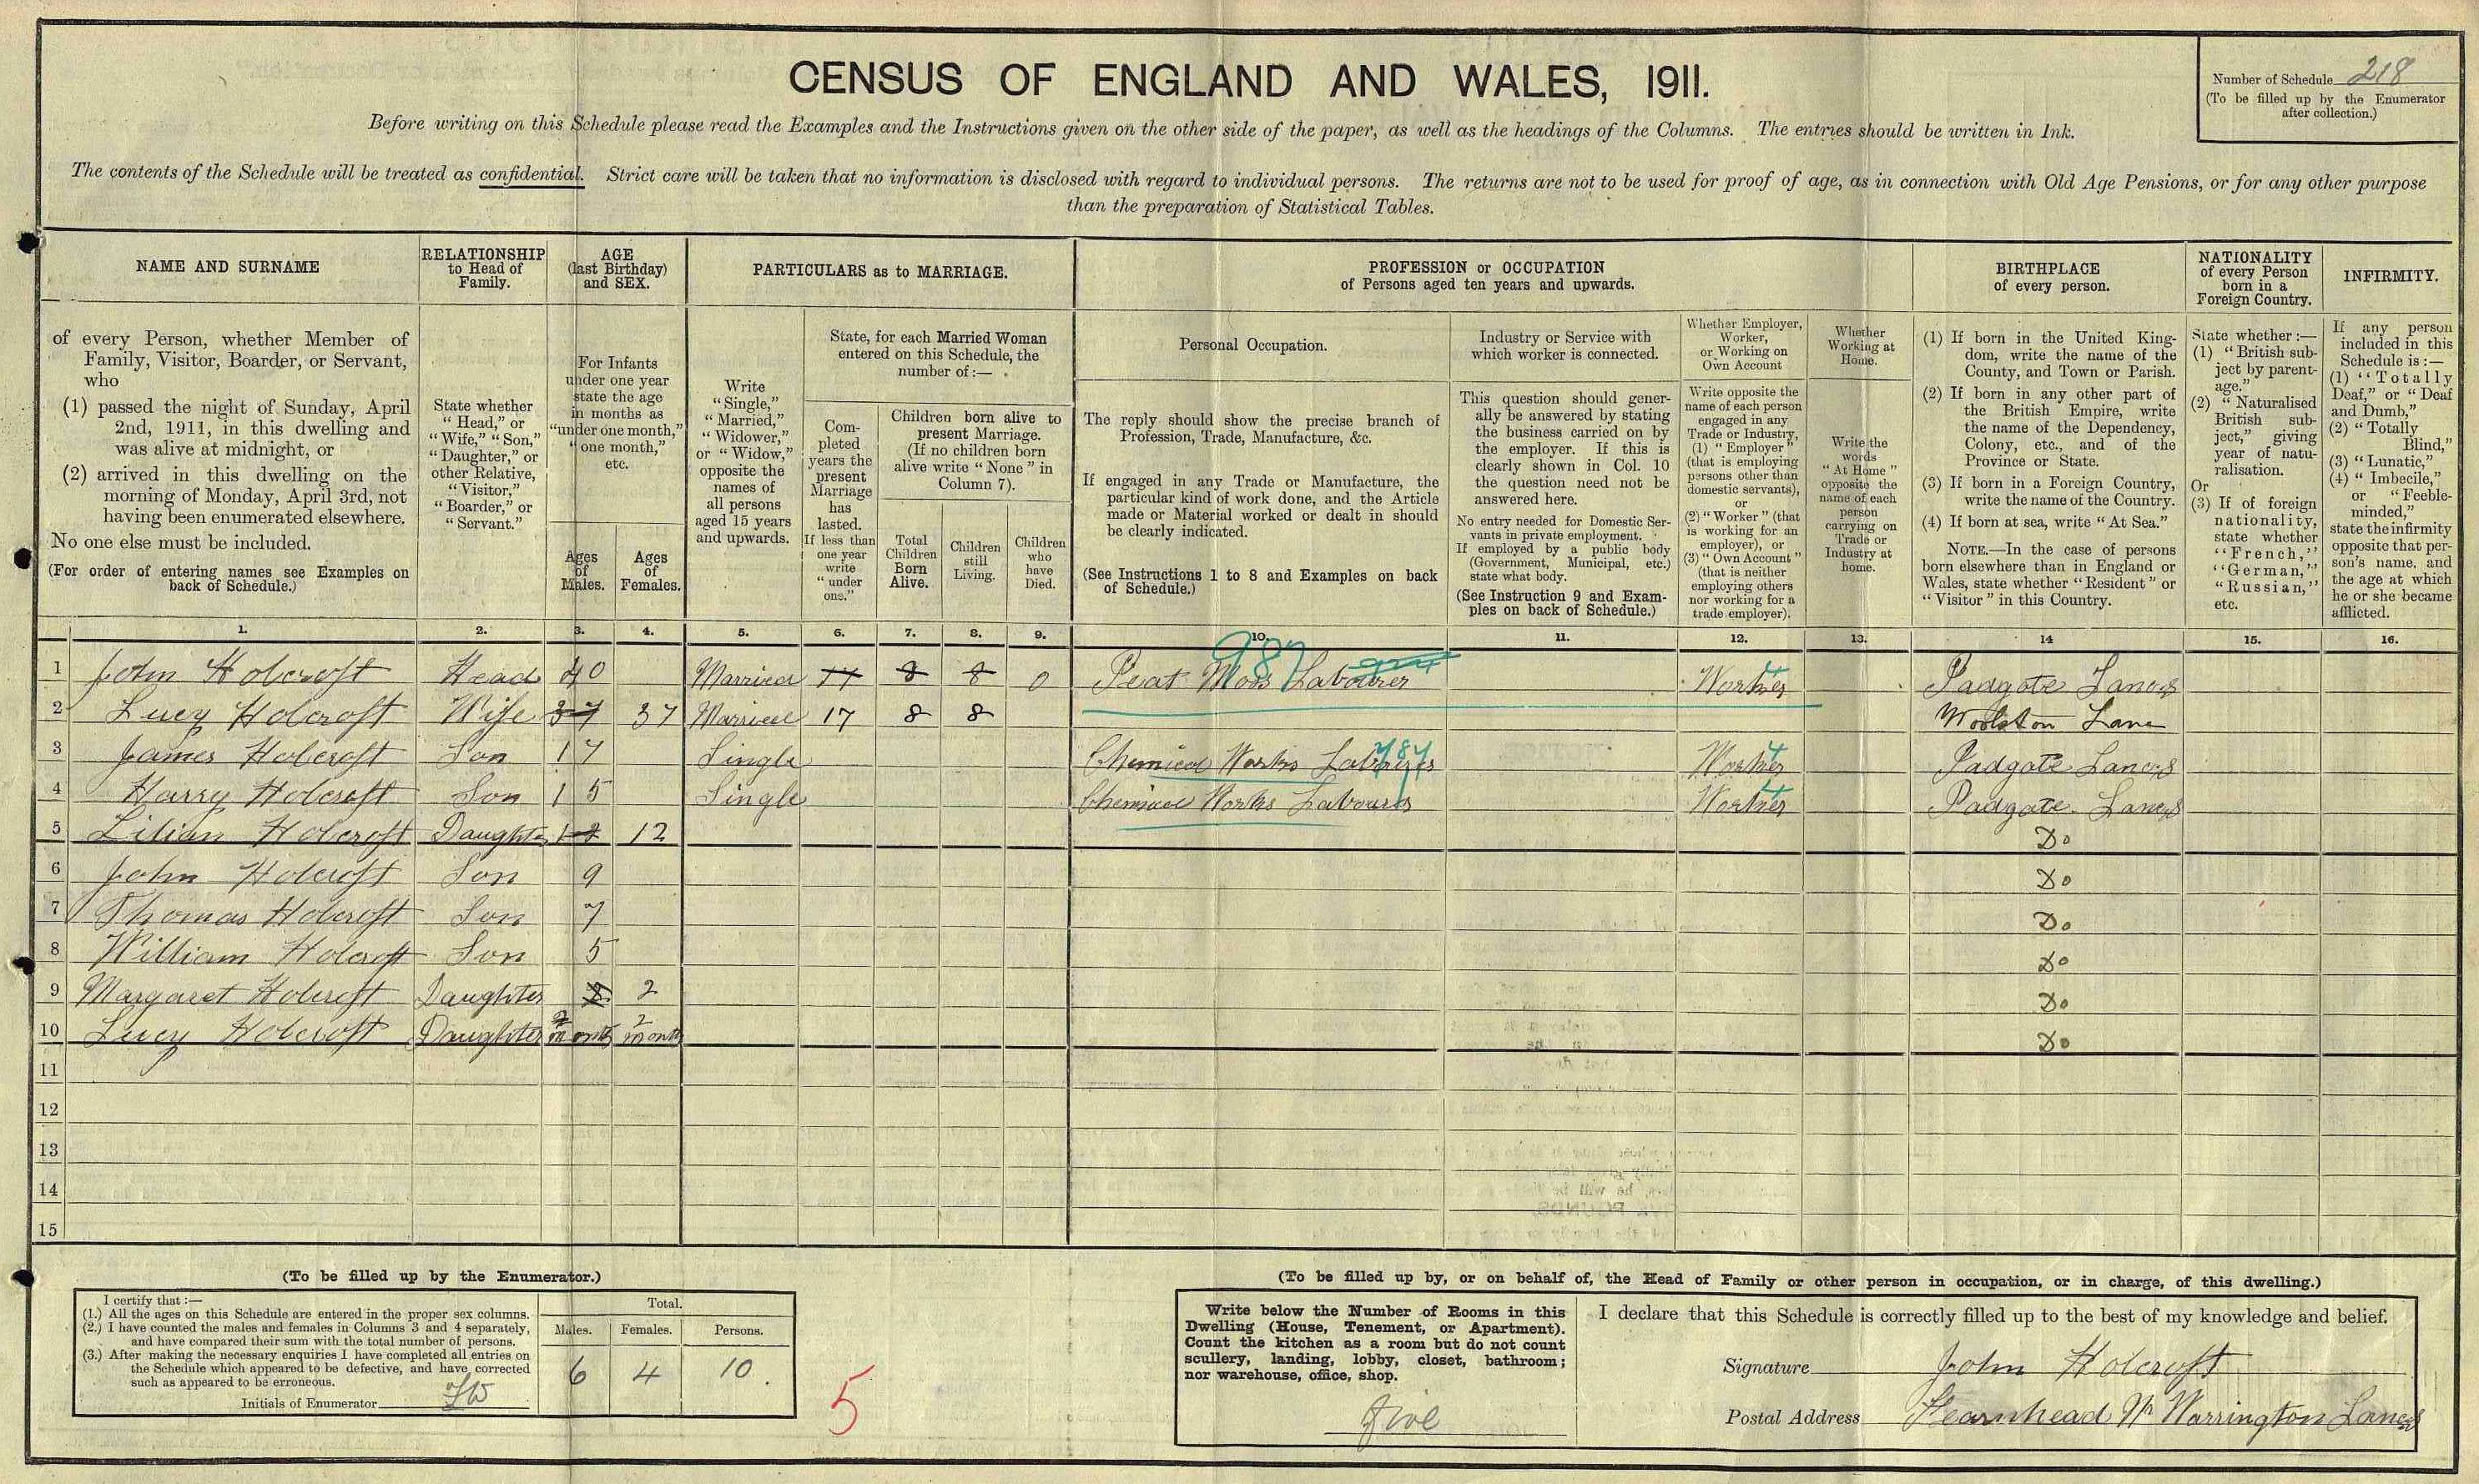 CENSUS OF ENGLAND AND WALES, 1911.
Number of Schedule 218
(To be filled up by the Enumerator after collection.)
Before writing on this Schedule please read the Examples and the Instructions given on the other side of the paper, as well as the headings of the Columns. The entries should be written in Ink.
The contents of the Schedule will be treated as confidential. Strict care will be taken that no information is disclosed with regard to individual persons. The returns are not to be used for proof of age, as in connection with Old Age Pensions, or for any other purpose
than the preparation of Statistical Tables.
NAME AND SURNAME
of every Person, whether Member of
Family, Visitor, Boarder, or Servant,
who
(1) passed the night of Sunday, April
2nd, 1911, in this dwelling and
was alive at midnight, or
(2) arrived in this dwelling on the
morning of Monday, April 3rd, not
having been enumerated elsewhere.
No one else must be included.
(For order of entering names see Examples on
back of Schedule.)
RELATIONSHIP
to Head of
Family.
State whether
"Head," or
"Wife," "Son,"
"Daughter," or
other Relative,
"Visitor,"
"Boarder," or
"Servant."
AGE
(last Birthday)
and SEX.
For Infants
under one year
state the age
in months as
"under one month,"
"one month,"
etc.
Ages
of
Males.
Ages
of
Females.
PARTICULARS as to MARRIAGE.
Write
"Single,"
"Married,"
"Widower,"
or "Widow,"
opposite the
names of
all persons
aged 15 years
and upwards.
State, for each Married Woman
entered on this Schedule, the
number of:—
Com-
pleted
years the
present
Marriage
has
lasted.
If less than
one year
write
"under
one."
Children born alive to
present Marriage.
(If no children born
alive write "None" in
Column 7).
Total
Children
Born
Alive.
Children
still
Living.
Children
who
have
Died.
PROFESSION or OCCUPATION
of Persons aged ten years and upwards.
Personal Occupation.
The reply should show the precise branch of
Profession, Trade, Manufacture, &c.
If engaged in any Trade or Manufacture, the
particular kind of work done, and the Article
made or Material worked or dealt in should
be clearly indicated.
(See Instructions 1 to 8 and Examples on back
of Schedule.)
Industry or Service with
which worker is connected.
This question should gener-
ally be answered by stating
the business carried on by
the employer. If this is
clearly shown in Col. 10
the question need not be
answered here.
No entry needed for Domestic Ser-
vants in private employment.
If employed by a public body
(Government, Municipal, etc.)
state what body.
(See Instruction 9 and Exam-
ples on back of Schedule.)
Whether Employer,
Worker,
or Working on
Own Account
Write opposite the
name of each person
engaged in any
Trade or Industry,
(1) "Employer"
(that is employing
persons other than
domestic servants),
or
(2) "Worker" (that
is working for an
employer), or
(3) "Own Account"
(that is neither
employing others
nor working for a
trade employer).
Whether
Working at
Home.
Write the
words
"At Home"
opposite the
name of each
person
carrying on
Trade or
Industry at
home.
BIRTHPLACE
of every person.
(1) If born in the United King-
dom, write the name of the
County, and Town or Parish.
(2) If born in any other part of
the British Empire, write
the name of the Dependency,
Colony, etc., and of the
Province or State.
(3) If born in a Foreign Country,
write the name of the Country.
(4) If born at sea, write "At Sea."
NOTE.—In the case of persons
born elsewhere than in England or
Wales, state whether "Resident" or
"Visitor" in this Country.
NATIONALITY
of every Person
born in a
Foreign Country.
State whether:—
(1) "British sub-
ject by parent-
age."
(2) "Naturalised
British sub-
ject," giving
year of natu-
ralisation.
Or
(3) If of foreign
nationality,
state whether
"French,"
"German,"
"Russian,"
etc.
INFIRMITY.
If any person
included in this
Schedule is:—
(1) "Totally
Deaf," or "Deaf
and Dumb,"
(2) "Totally
Blind,"
(3) "Lunatic,"
(4) "Imbecile,"
or "Feeble-
minded,"
state the infirmity
opposite that per-
son's name, and
the age at which
he or she became
afflicted.
1. 2. 3. 4. 5. 6. 7. 8. 9. 10. 11. 12. 13. 14 15. 16.
987
1 John Holcroft Head 40 Married 17 8 8 0 Peat Moss Labourer Worker 4 Padgate Lancs
2 Lucy Holcroft Wife 37 37 Married 17 8 8 Woolston Lanc
3 James Holcroft Son 17 Single Chemical Works Labourer 787 Worker 4 Padgate Lancs
4 Harry Holcroft Son 15 Single Chemical Works Labourer Worker 4 Padgate Lancs
5 Lilian Holcroft Daughter 12 12 Do
6 John Holcroft Son 9 Do
7 Thomas Holcroft Son 7 Do
8 William Holcroft Son 5 Do
9 Margaret Holcroft Daughter 2 Do
10 Lucy Holcroft Daughter 2 months 2 month Do
11
12
13
14
15
(To be filled up by the Enumerator.)
I certify that:—
(1.) All the ages on this Schedule are entered in the proper sex columns.
(2.) I have counted the males and females in Columns 3 and 4 separately,
and have compared their sum with the total number of persons.
(3.) After making the necessary enquiries I have completed all entries on
the Schedule which appeared to be defective, and have corrected
such as appeared to be erroneous.
Initials of Enumerator
Total.
Males. Females. Persons.
6 4 10.
5
(To be filled up by, or on behalf of, the Head of Family or other person in occupation, or in charge, of this dwelling.)
Write below the Number of Rooms in this
Dwelling (House, Tenement, or Apartment).
Count the kitchen as a room but do not count
scullery, landing, lobby, closet, bathroom;
nor warehouse, office, shop.
five
I declare that this Schedule is correctly filled up to the best of my knowledge and belief.
Signature John Holcroft
Postal Address Fearnhead Nr Warrington Lancs